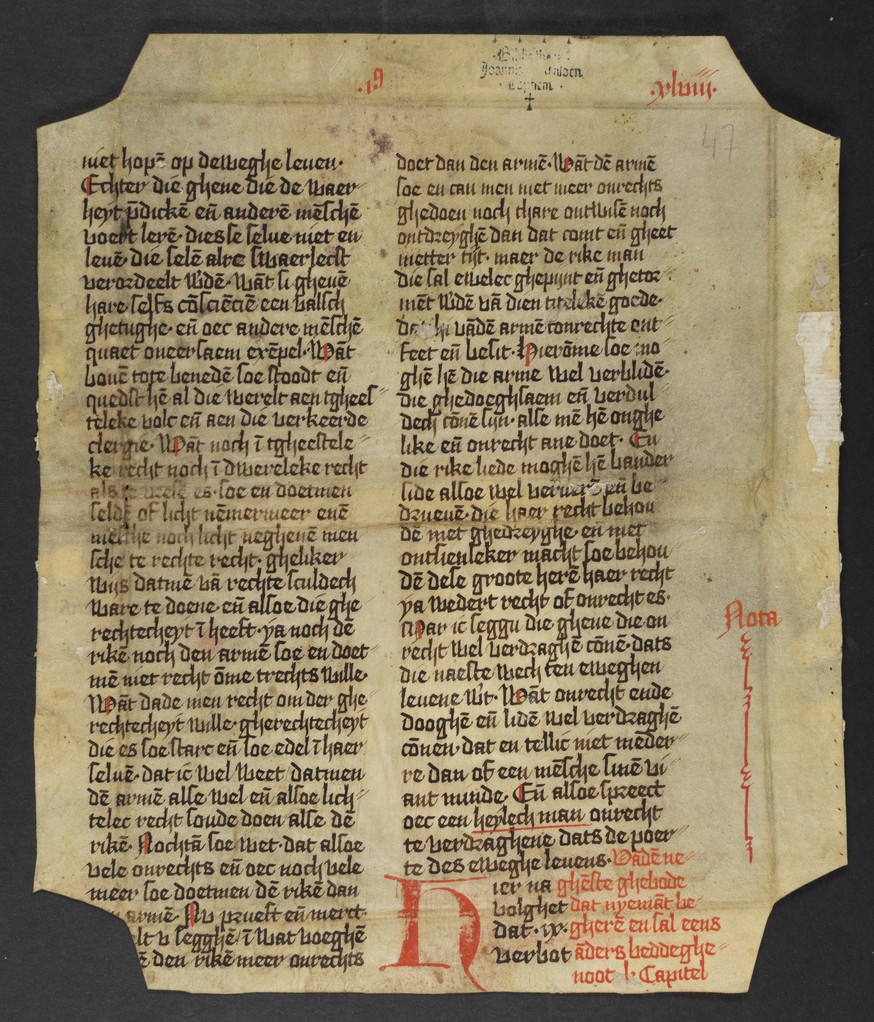 .i9
Bibliotheca
Joannis
Lophem
.xlviii.
47
niet hopē op deweghe leuen·
Echter die ghene die de waer⸗
heyt p̄dickē en̄ anderē mēschē
voert lerē· diesse selue niet en
leuē· die selē alre swaerlecst
verordeelt w̓dē· wāt si gheuē
hare selfs cōsciēciē een valsch
ghetughe· en̄ oec andere mēschē
quaet oneersaem exēpel· Wāt
bouē tote benedē soe stoodt en̄
quedst hē al die werelt aen tgheest⸗
teleke volc en̄ aen die verkeerde
clergie· Wāt noch ī tgheestele⸗
ke recht noch ī dwereleke recht
als es· soe en doetmen
seldē of licht nēmermeer euē
mēsche noch licht neghenē men⸗
sche te rechte recht· gheliker
wijs datmē vā rechte sculdech
ware te doene· en̄ alsoe die ghe⸗
rechtecheyt ī heeft· ya noch dē
rikē noch den armē soe en doet⸗
mē niet recht ōme trechts wille·
Wāt dade men recht om der ghe⸗
rechtecheyt wille· gherechtecheyt
die es soe starc en̄ soe edel ī haer
seluē· dat ic wel weet datmen
dē armē alse wel en̄ alsoe lich⸗
telec recht soude doen alse dē
rikē· Nochtā soe wet· dat alsoe
vele onrechts en̄ oec noch vele
meer soe doetmen dē rikē dan
armē· Nv prueft en̄ merct·
v segghē· ī wat voeghē
den rikē meer onrechts
doet dan den armē· Wāt dē armē
soe en can men niet meer onrechts
ghedoen noch thare ontwisē noch
ontdreyghē dan dat comt en̄ gheet
metter tijt· maer de rike man
die sal ewelec ghepijnt en̄ ghetor⸗
mēt w̓dē vā dien titelekē goede·
dat hi vādē armē tonrechte ont⸗
feet en̄ besit· Hierōme soe mo⸗
ghē hē die arme wel verblidē·
die ghedoeghsaem en̄ verdul⸗
dech cōnē sijn· alse mē hē onghe⸗
like en̄ onrecht ane doet· En̄
die rike liede moghē hē vander
side alsoe wel veruerē en̄ be⸗
drueuē· die haer recht behou⸗
dē met ghedreyghe· en met
ontsienleker macht soe behou⸗
dē dese groote herē haer recht
ya wedert recht of onrecht es·
Mar ic seggu die ghene die on⸗
recht wel verdraghē cōnē· dats
die naeste wech ten eweghen
leuene wt· Wāt onrecht ende
dooghē en̄ lidē wel verdraghē
cōnen· dat en tellic niet mēder⸗
re dan of een mēsche sinē vi⸗
ant minde· En̄ alsoe spreect
oec een heylech man onrecht
te verdraghene dats de poer⸗
te des eweghe leuens· Vādē ne⸗
Hier na ghēste ghebode
volghet dat nyemāt be⸗
dat· ix· gherē en sal eens
verbot āders beddeghe⸗
noot l· Capitel
Nota